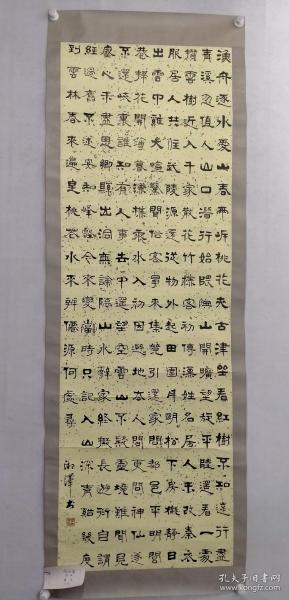 漁舟逐水愛山春兩岸桃花夾古津坐看紅樹不知遠行盡
青溪忽值人山口潛行始隈隩山開曠望旋平陸遙看一處
攢雲樹近入千家散花竹樵客初傳漢姓名居人未改秦衣
服居人共住武陵源還從物外起田園月明松下房櫳靜日
出雲中雞犬喧驚聞俗客爭來集競引還家問都邑平明閭
巷掃花開薄暮漁樵乘水入初因避地去人間更問神仙遂
不還峽裏誰知有人事世中遙望空雲山不疑靈境難聞見
塵心未盡思鄉縣出洞無論隔山水辭家終擬長遊衍自謂
經過舊不迷安知峰壑今來變當時只記入山深青谿幾度
到雲林春來遍是桃花水不辨僊源何處尋
孔夫子旧书网